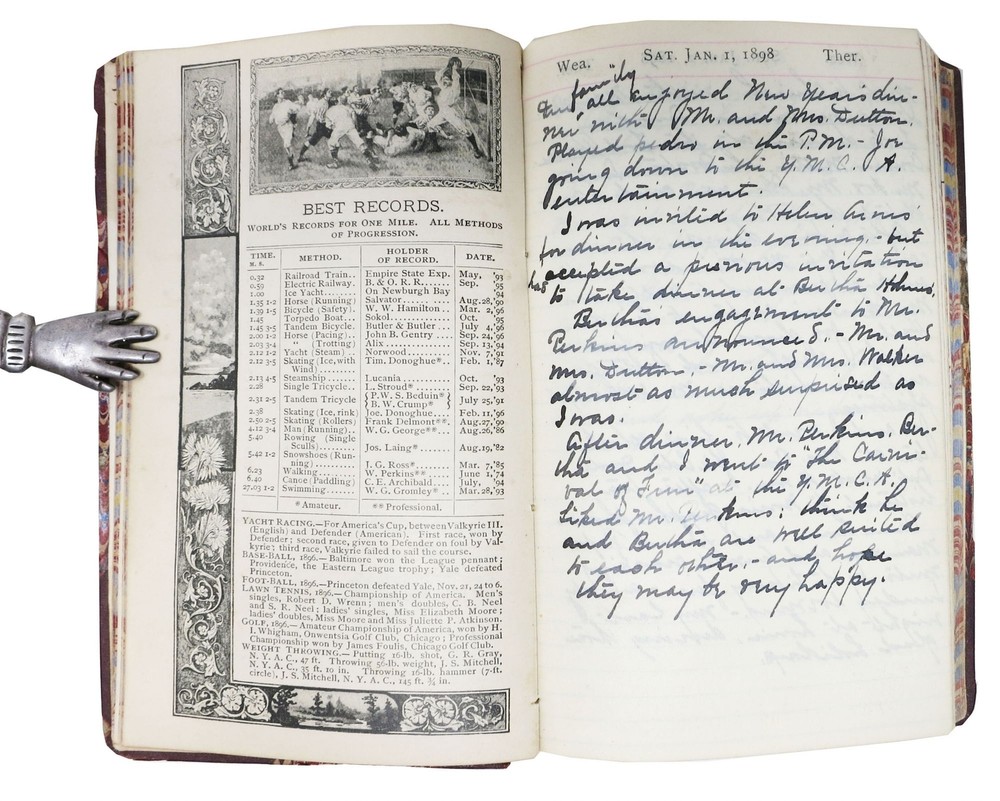 BEST RECORDS.
WORLD'S RECORDS FOR ONE MILE. ALL METHODS
OF PROGRESSION.
TIME. METHOD. HOLDER DATE.
M. S. OF RECORD.
0.32 Railroad Train.. Empire State Exp. May, '93
0.59 Electric Railway. B. & O. R. R....... Sep. '95
1.00 Ice Yacht........ On Newburgh Bay '94
1.35 1-2 Horse (Running) Salvator......... Aug.28,'90
1.39 1-5 Bicycle (Safety). W. W. Hamilton.. Mar. 2,'96
1.45 Torpedo Boat... Sokol............ Oct. '95
1.45 3-5 Tandem Bicycle. Butler & Butler... July 4,'96
2.00 1-2 Horse (Pacing).. John B. Gentry... Sep. 24,'96
2.03 3-4 " (Trotting) Alix............. Sep. 13,'94
2.12 1-2 Yacht (Steam)... Norwood......... Nov. 7,'91
2.12 3-5 Skating (Ice, with Tim. Donoghue*.. Feb. 1,'87
Wind).......
2.13 4-5 Steamship....... Lucania.......... Oct. '93
2.28 Single Tricycle.. L. Stroud*....... Sep. 22,'93
2.31 2-5 Tandem Tricycle { P.W. S. Beduin* } July 25,'91
{ B. W. Crump* }
2.38 Skating (Ice, rink) Joe. Donoghue.... Feb. 11,'96
2.50 2-5 Skating (Rollers) Frank Delmont**. Aug.27,'90
4.12 3-4 Man (Running).. W. G. George**... Aug.26,'86
5.40 Rowing (Single
Sculls)......... Jos. Laing*...... Aug.19,'82
5.42 1-2 Snowshoes (Run-
ning).......... J. G. Ross*...... Mar. 7,'85
6.23 Walking......... W. Perkins**.... June 1,'74
6.40 Canoe (Paddling) C. E. Archibald... July, '94
27.03 1-2 Swimming....... W. G. Gromley* . Mar.28,'93
*Amateur. **Professional.
YACHT RACING.—For America's Cup, between Valkyrie III.
(English) and Defender (American). First race, won by
Defender; second race, given to Defender on foul by Val-
kyrie; third race, Valkyrie failed to sail the course.
BASE-BALL, 1896.—Baltimore won the League pennant;
Providence, the Eastern League trophy; Yale defeated
Princeton.
FOOT-BALL, 1896.—Princeton defeated Yale, Nov. 21, 24 to 6.
LAWN TENNIS, 1896.—Championship of America. Men's
singles, Robert D. Wrenn; men's doubles, C. B. Neel
and S. R. Neel; ladies' singles, Miss Elizabeth Moore;
ladies' doubles, Miss Moore and Miss Juliette P. Atkinson.
GOLF, 1896.—Amateur Championship of America, won by H.
J. Whigham, Onwentsia Golf Club, Chicago; Professional
Championship won by James Foulis, Chicago Golf Club.
WEIGHT THROWING.—Putting 16-lb. shot, G. R. Gray,
N. Y. A. C., 47 ft. Throwing 56-lb. weight, J. S. Mitchell,
N. Y. A. C., 35 ft. 10 in. Throwing 16-lb. hammer (7-ft.
circle), J. S. Mitchell, N. Y. A. C., 145 ft. ¾ in.
Wea. SAT. JAN. 1, 1898 Ther.
family
all enjoyed New Years din-
ner with Mr. and Mrs. Dutton.
Played pedro in the P.M. - Joe
going down to the Y. M. C. A.
entertainment.
I was invited to Helen Arms'
for dinner in the evening, - but
had accepted a previous invitation
to take dinner at Bertha Holmes.
Bertha's engagement to Mr.
Perkins announced. - Mr. and
Mrs. Dutton, - Mr. and Mrs. Walker
almost as much surprised as
I was.
After dinner, Mr. Perkins, Ber-
tha and I went to "The Carni-
val of Fun" at the Y. M. C. A.
Liked Mr. Perkins; think he
and Bertha are well suited
to each other, - and hope
they may be very happy.